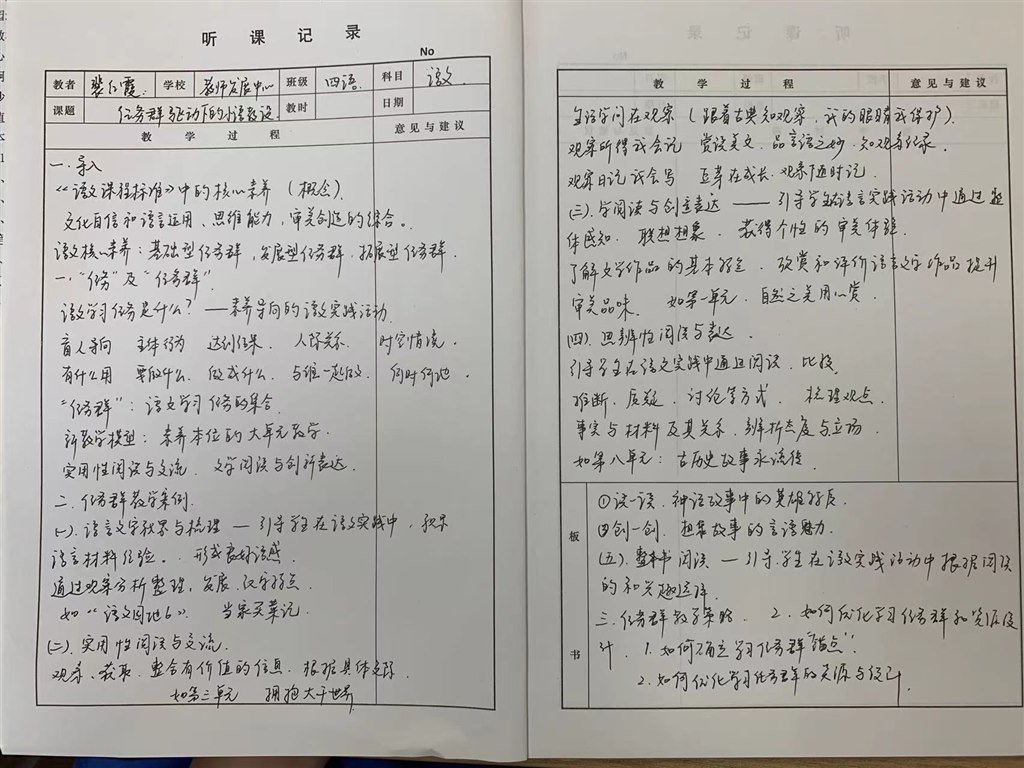 听课记录
No
教者 裴红霞 学校 教师发展中心 班级 四语 科目 语文
课题 任务群驱动下的小语教设 教时 日期
教学过程 意见与建议
一.导入
《语文课程标准》中的核心素养(概念)
文化自信和语言运用、思维能力,审美创造的综合。
语文核心素养:基础型任务群,发展型任务群,拓展型任务群.
一."任务"及"任务群"
语文学习任务是什么?——素养导向的语文实践活动
育人导向 主体行为 达到结果 人际关系 时空情境.
有什么用 要做什么. 做成什么. 与谁一起做. 何时何地.
"任务群":语文学习任务的集合.
新教学模型:素养本位的大单元教学.
实用性阅读与交流. 文学阅读与创新表达.
二.任务群教学案例.
(一).语言文字积累与梳理—引导学生在语文实践中,积累
语言材料经验。.形成良好语感
通过观察分析整理,发展.汉字特点.
如"语文园地6》 当家买菜记.
(二).实用性阅读与交流.
观察、获取、整合有价值的信息.根据具体交际
如第三单元 拥抱大千世界
教学过程 意见与建议
生活学问在观察(跟着古典知观察,我的眼睛我保护).
观察所得我会记 赏读美文.品言语之妙.知观者纪录.
观察日记我会写 豆芽在成长.观察随时记.
(三).学阅读与创意表达——引导学生在语言实践活动中通过整
体感知.联想想象. 获得个性的审美体验.
了解文学作品的基本特点.欣赏和评价语言文字作品提升
审美品味. 如第一单元.自然之美用心赏.
四).思辨性阅读与表达.
引导学生在语文实践中通过阅读.比较.
推断、质疑.讨论等方式.梳理观点.
事实与材料及其关系.辨析态度与立场.
如第八单元:古历史故事永流传.
板书
①谈一谈.神话故事中的英雄特质.
④创一创.想象故事的言语魅力.
(五).整本书阅读—引导.学生在语文实践活动中根据阅读
的和兴趣选择.
三.任务群教学策略. 2.如何优化学习任务群和资源设
计.1.如何确立学习任务群"锚点".
2.如何优化学习任务群的资源与设计.